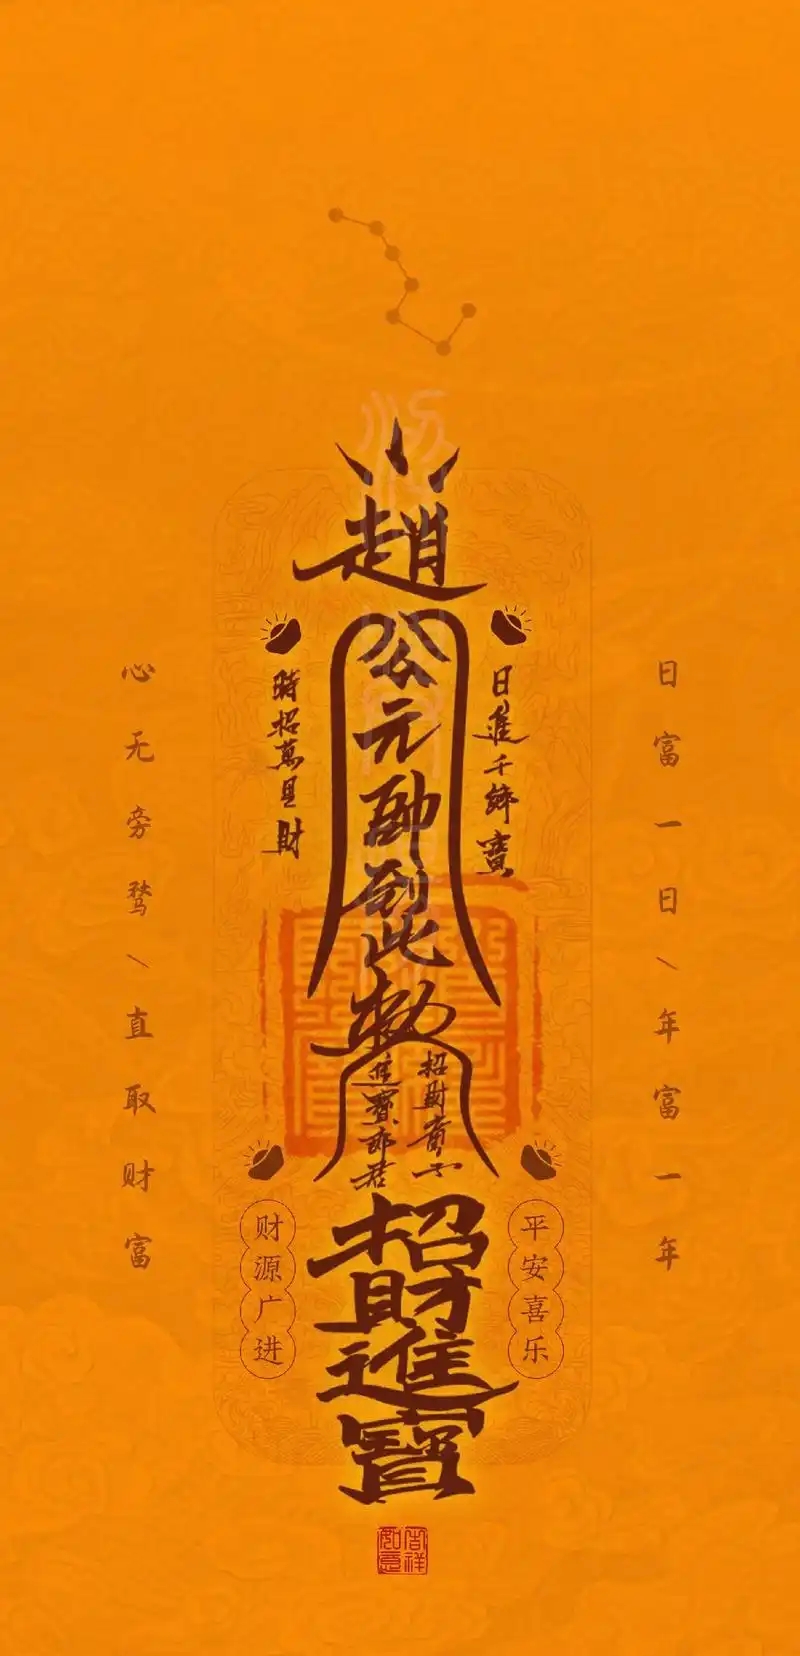 日富一日、年富一年
日進千鄉寶
趙公元帥到此敕
時招萬里財
心无旁骛、直取财富
招財童子
進寶郎君
平安喜乐
招財進寶
财源广进
吉祥如意